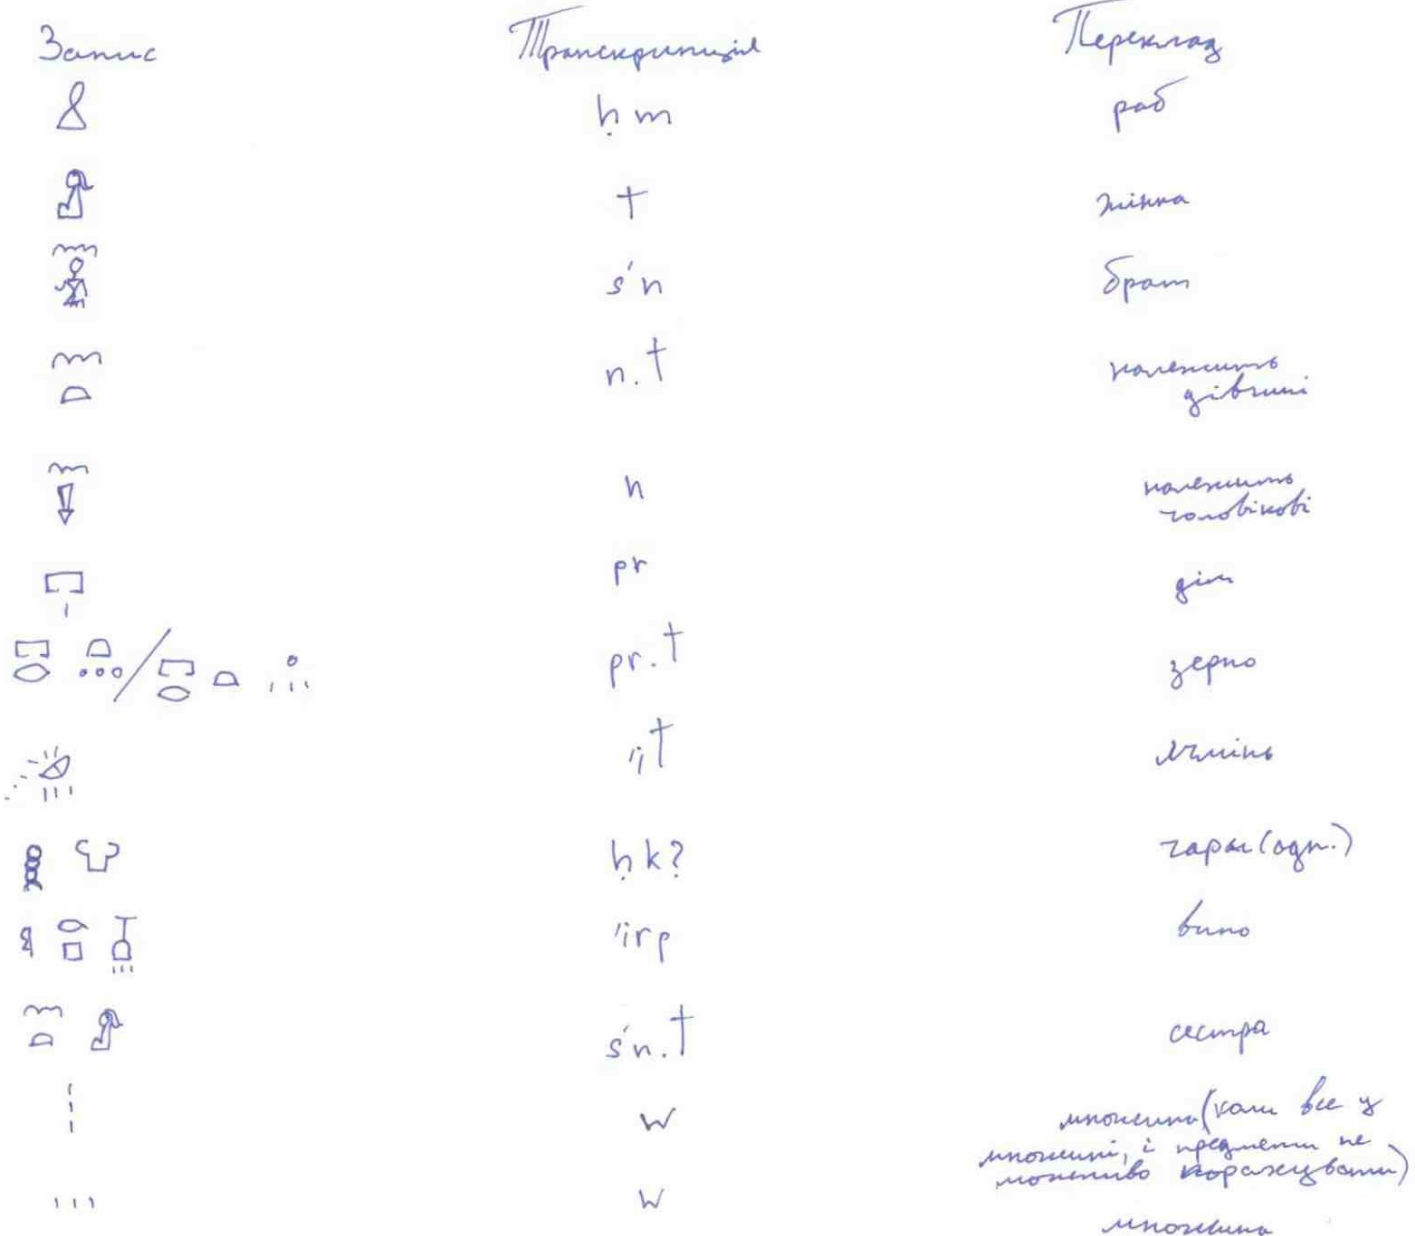 Запис Транскрипція Переклад
ḥm раб
t жінка
śn брат
n.t належить
дівчині
n належить
чоловікові
pr дім
pr.t зерно
ı͗t ячмінь
ḥk? чари (одн.)
ı͗rp вино
śn.t сестра
w множина (коли все у
множині, і предмети не
можливо порахувати)
w множина